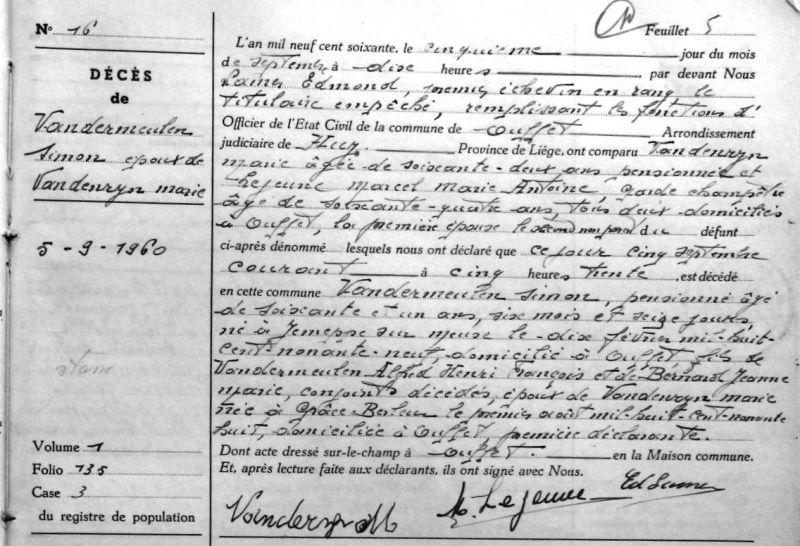 N° 16
DÉCÈS
de
Vandermeulen
Simon époux de
Vandenryn marie
5 - 9 - 1960
Volume 1
Folio 135
Case 3
du registre de population
Feuillet 5
L'an mil neuf cent soixante, le cinquième jour du mois
de septembre à dix heures, par devant Nous
Edmond, échevin en rang le
titulaire empêché, remplissant les fonctions d'
Officier de l'Etat Civil de la commune de Ouffet Arrondissement
judiciaire de Huy. Province de Liège, ont comparu Vandenryn
marie âgée de soixante-deux ans pensionnée et
Lejeune Marcel Marie Antoine, Garde champêtre
âgé de soixante-quatre ans, tous deux domiciliés
à Ouffet, la première épouse le second non parent du défunt
ci-après dénommé lesquels nous ont déclaré que ce jour cinq septembre
courant à cinq heures trente, est décédé
en cette commune Vandermeulen Simon, pensionné âgé
de soixante et un ans, six mois et seize jours,
né à Jemeppe sur meuse le dix février mil-huit-
cent-nonante-neuf, domicilié à Ouffet, fils de
Vandermeulen Alfred Henri François et de Bernard Jeanne
marie, conjoints décédés, époux de Vandenryn marie
née à Grâce-Berleur le premier août mil-huit-cent-nonante
huit, domiciliée à Ouffet, première déclarante.
Dont acte dressé sur-le-champ à Ouffet. en la Maison commune.
Et, après lecture faite aux déclarants, ils ont signé avec Nous.
Vandenryn M
M. Lejeune